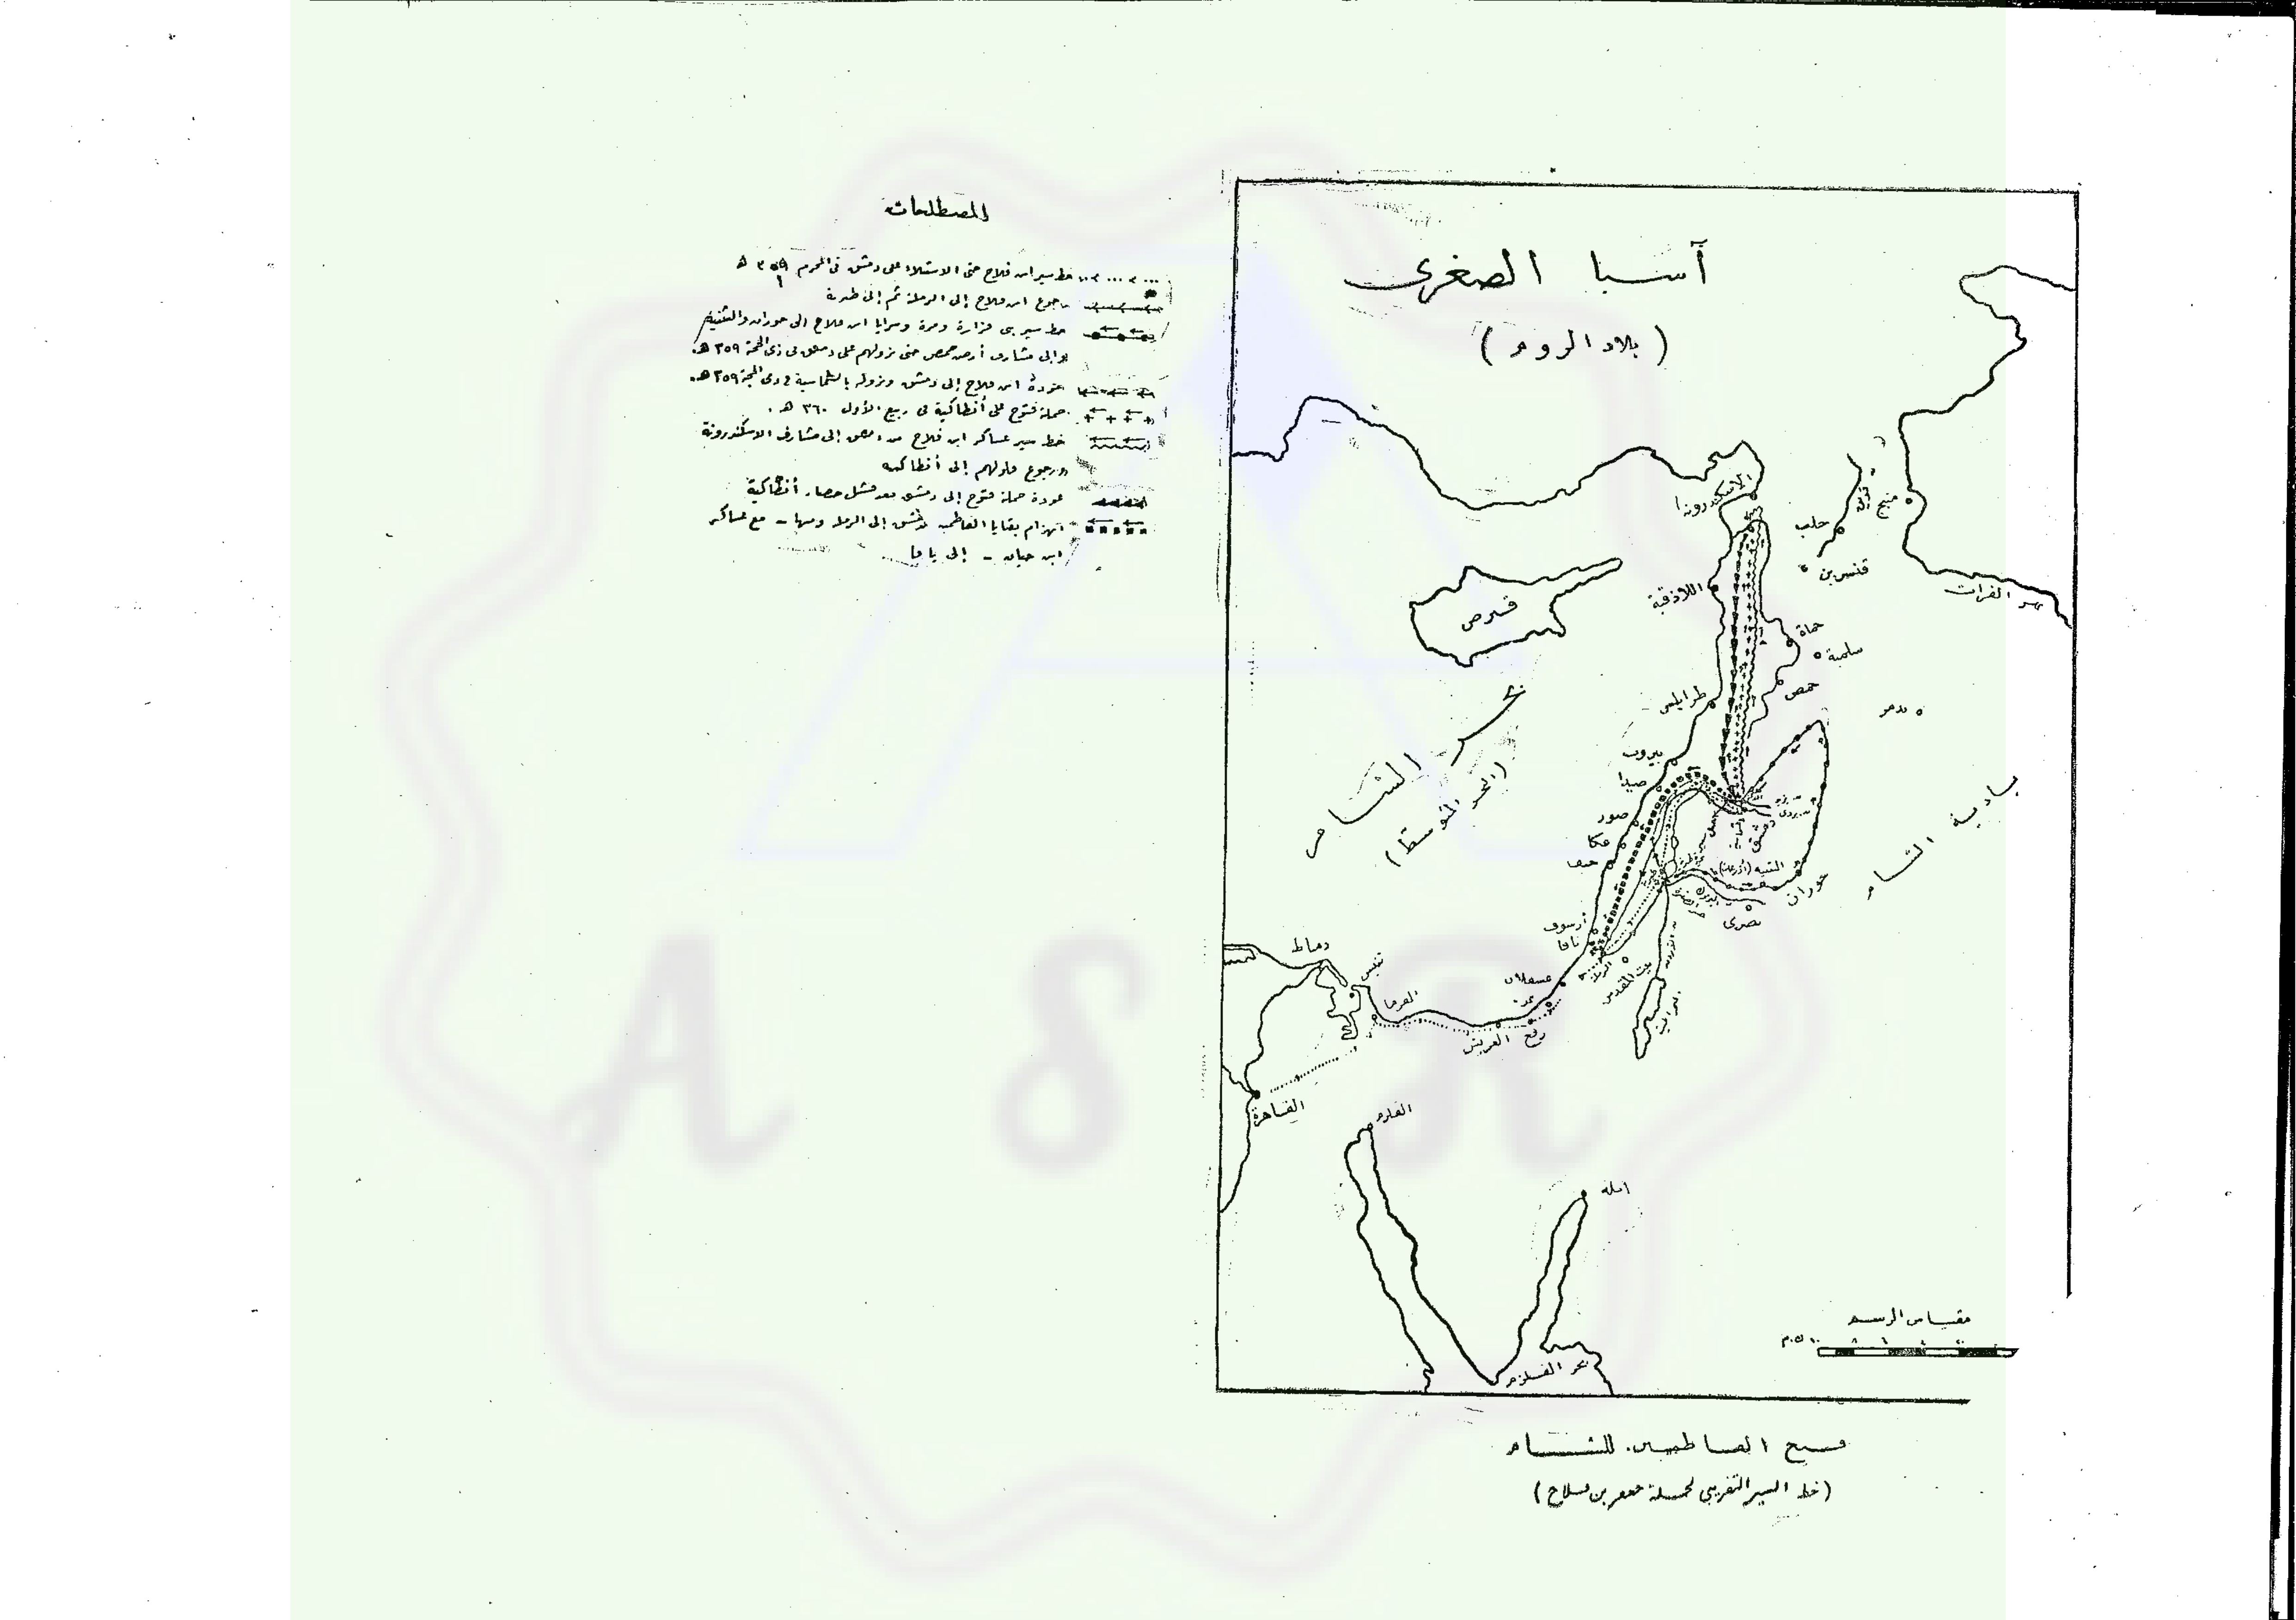 المصطلحات
خط سير ابن فلاح حتى الاستيلاء على دمشق فى المحرم ٣٥٩ هـ
رجوع ابن فلاح إلى الرملة ثم إلى طبرية
خط سير بنى فزارة ومرة وسرايا ابن فلاح إلى حوران والثنية
وإلى مشارف أرض حمص حتى نزولهم على دمشق فى ذى الحجة ٣٥٩ هـ.
عودة ابن فلاح إلى دمشق ونزوله بالشماسية فى ذى الحجة ٣٥٩ هـ.
حملة فتوح على أنطاكية فى ربيع الأول ٣٦٠ هـ.
خط سير عساكر ابن فلاح من دمشق إلى مشارف الاسكندرونة
ورجوع فلولهم إلى أنطاكيه
عودة حملة فتوح إلى دمشق بعد فشل حصار أنطاكية
انهزام بقايا الفاطميين إلى الرملة ومنها - مع عساكر
ابن حيان - إلى يافا
آسيا الصغرى
(بلاد الروم)
الاسكندرونة
منبج
حلب
قنسرين
نهر الفرات
اللاذقية
قبرص
حماة
سلمية
حمص
تدمر
طرابلس
بحر الشام
(البحر المتوسط)
بيروت
صيدا
صور
عكا
حيفا
دمشق
بادية الشام
حوران
بصرى
أرسوف
يافا
الرملة
بيت المقدس
عسقلان
غزة
رفح
العريش
الفرما
تنيس
دمياط
القاهرة
القلزم
ايله
بحر القلزم
مقياس الرسم
فتح الفاطميين للشام
(خط السير التقريبى لحملة جعفر بن فلاح)
A S R